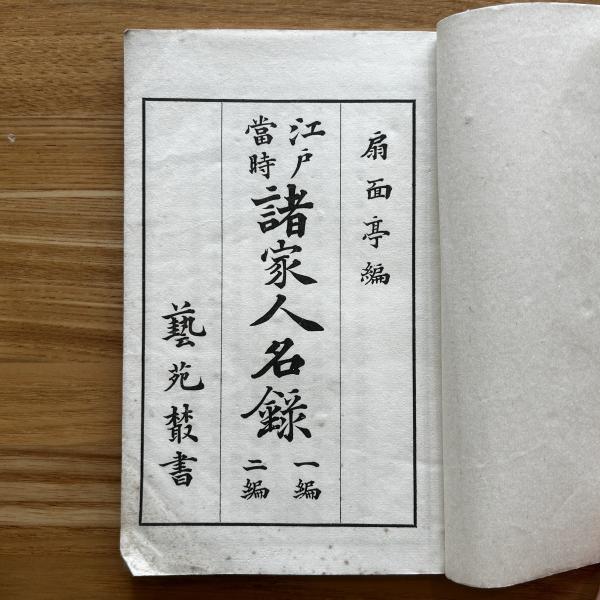 扇面亭編
江戸
當時
諸家人名錄
一編
二編
藝苑叢書